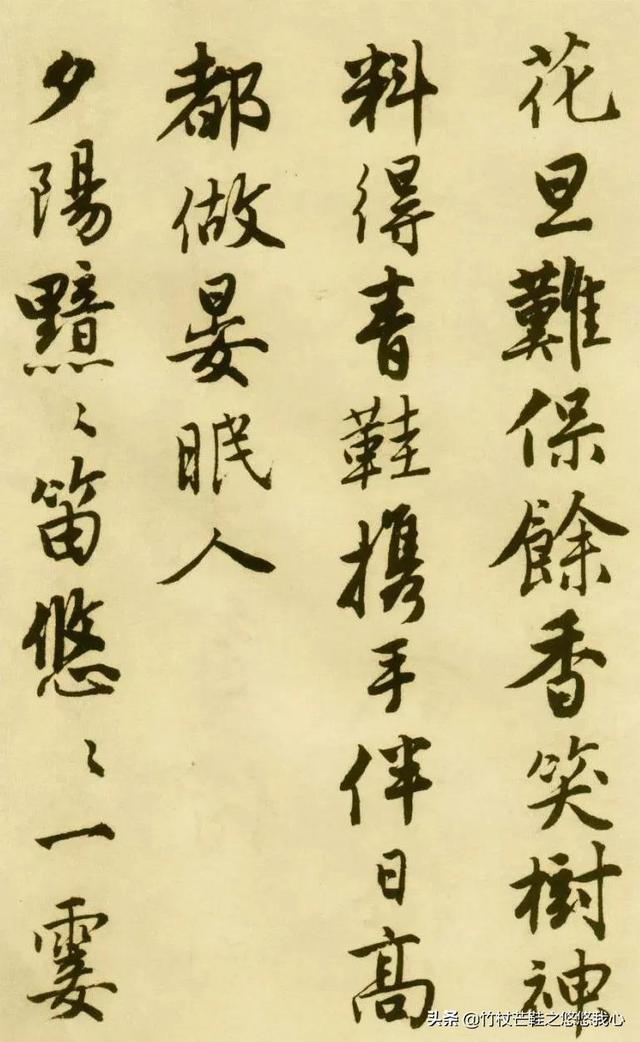 花旦難保餘香笑樹神
料得青鞋携手伴日高
都做晏眠人
夕陽黯〻笛悠〻一霎
头条 @竹杖芒鞋之悠悠我心